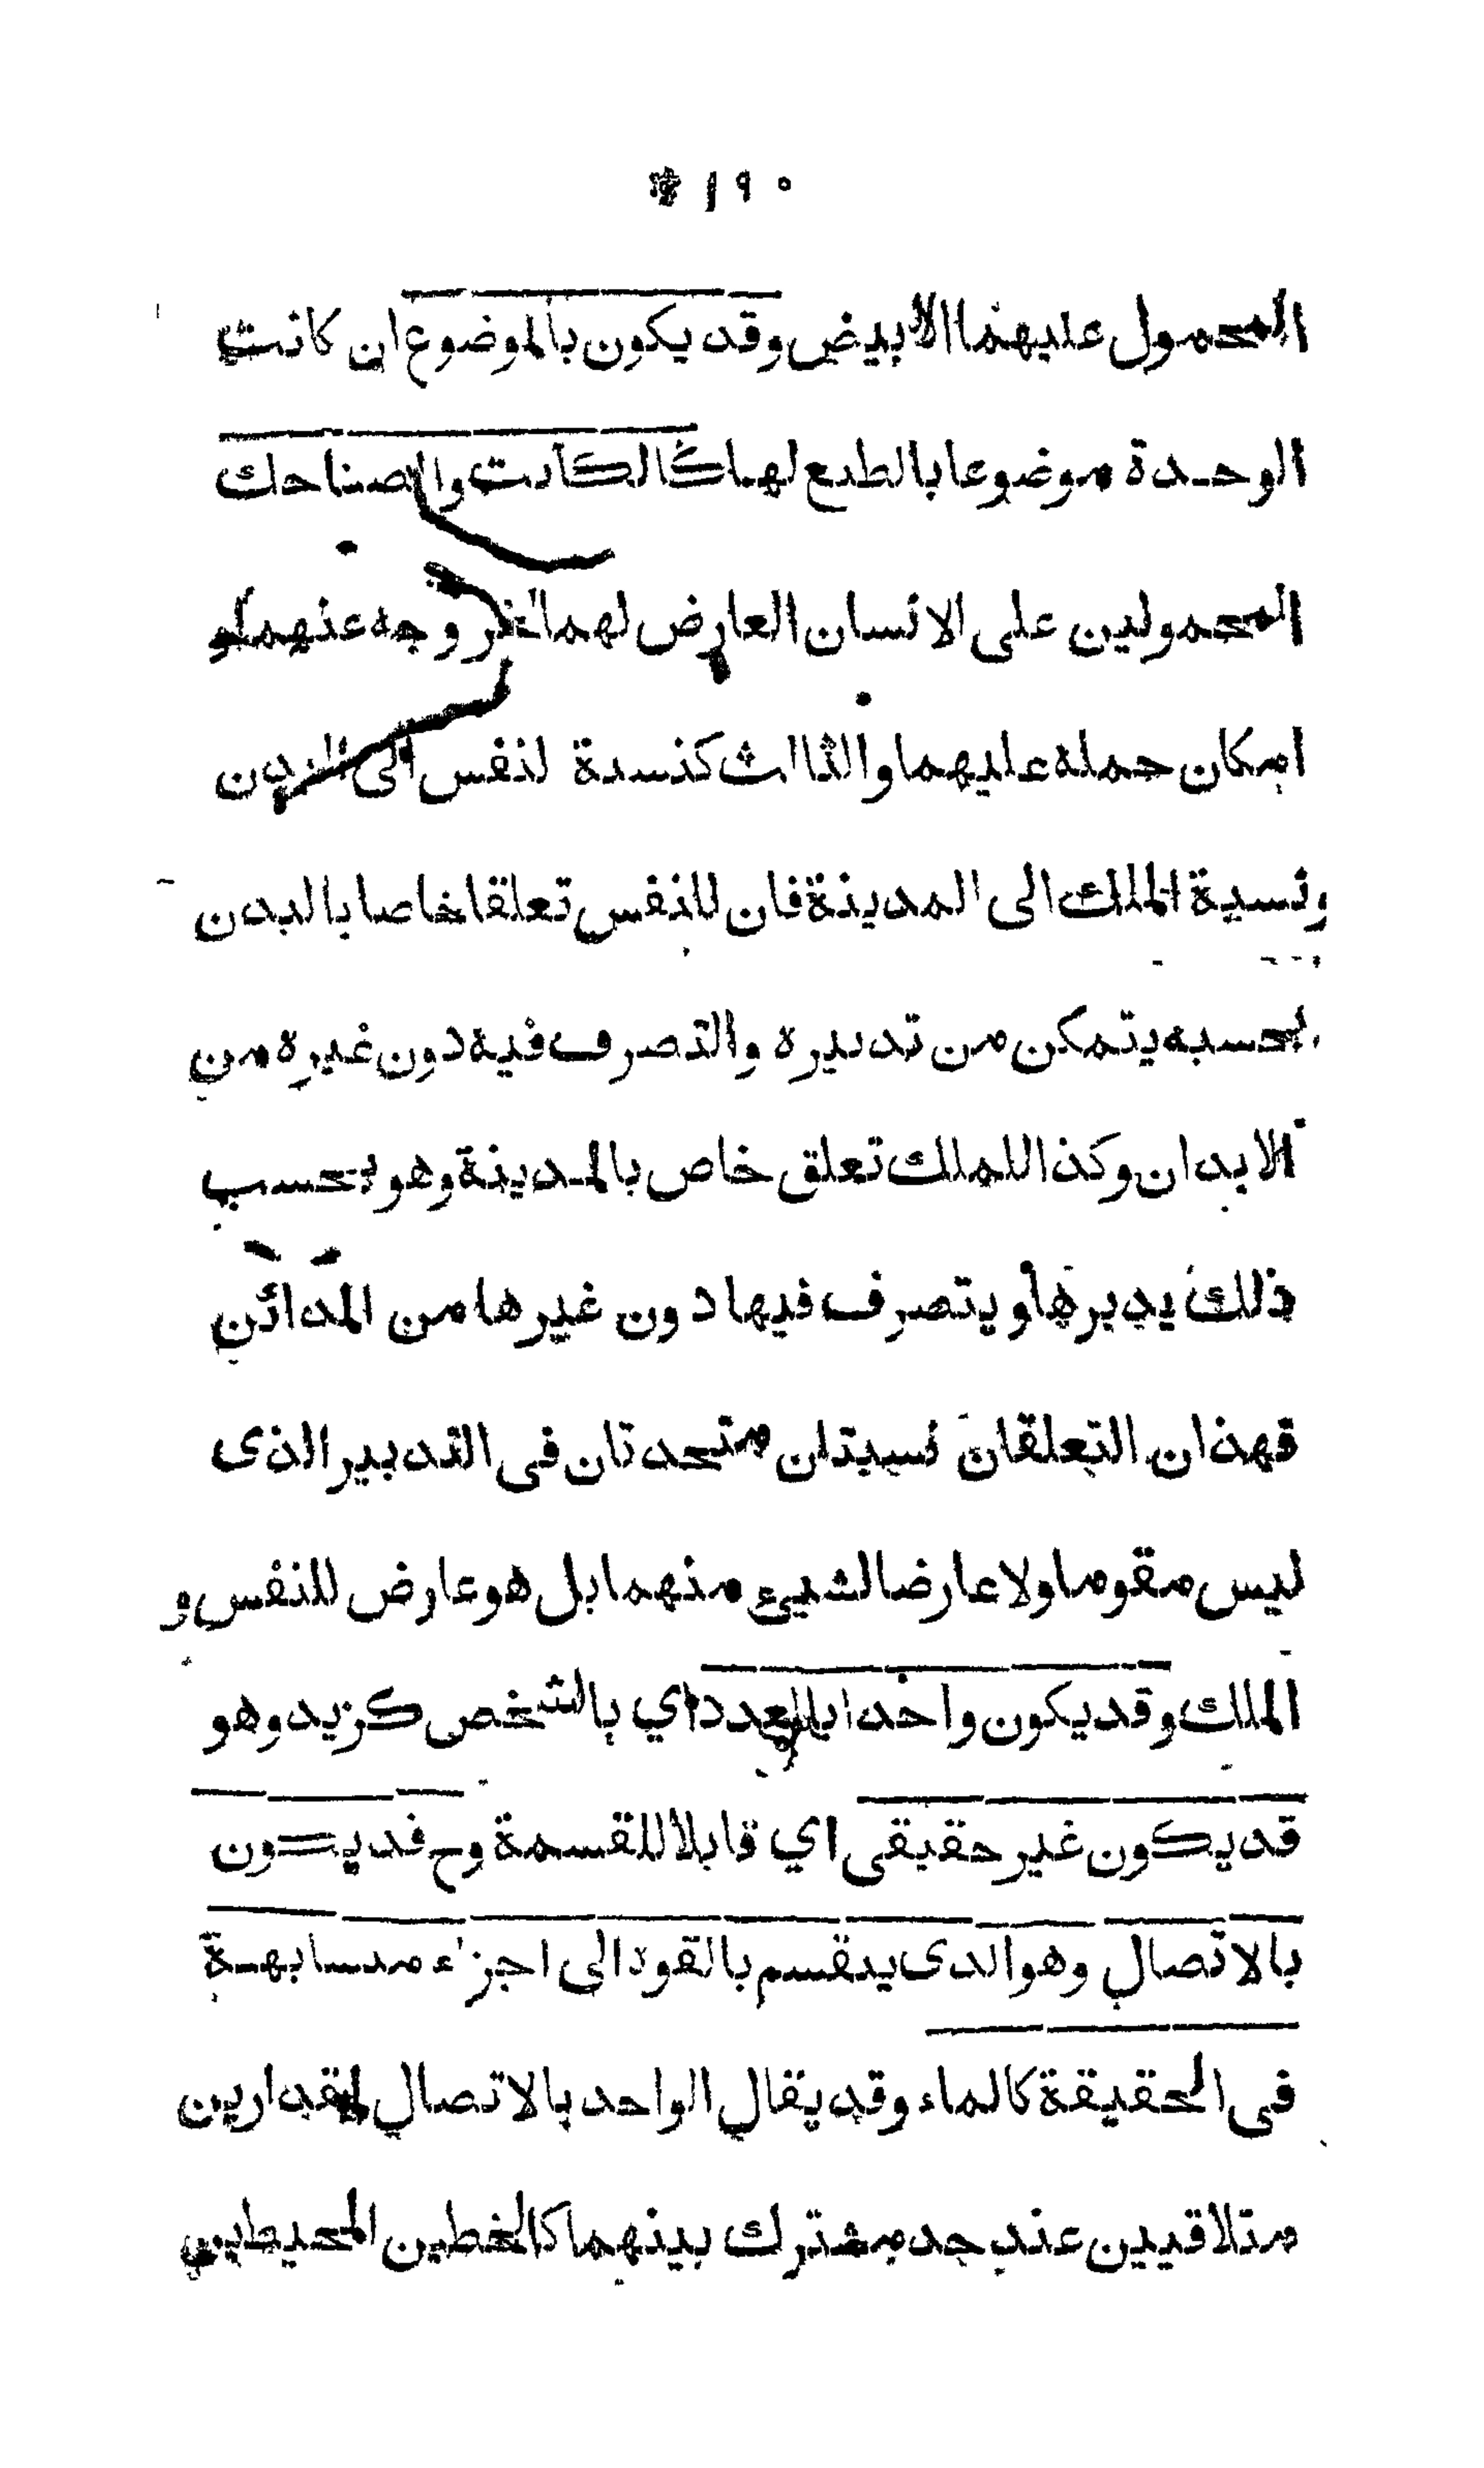 * ١٩٠
المحمول عليهما الابيض وقد يكون بالموضوع ان كانت
الوحدة موضوعا بالطبع لهما كالكاتب والضاحك
المحمولين على الانسان العارض لهما لخروجه عنهما و
امكان حمله عليهما والثالث كنسبة لنفس الى البدن
ونسبة الملك الى المدينة فان للنفس تعلقا خاصا بالبدن
بحسبه يتمكن من تدبيره والتصرف فيه دون غيره من
الابدان وكذا للملك تعلق خاص بالمدينة وهو بحسب
ذلك يدبرها ويتصرف فيها دون غيرها من المدائن
فهذان التعلقان نسبتان متحدتان فى التدبير الذى
ليس مقوما ولا عارضا لشيىء منهما بل هو عارض للنفس و
الملك وقد يكون واحدا بالعدد اي بالشخص كزيد وهو
قد يكون غير حقيقى اي قابلا للقسمة وح قد يكون
بالاتصال وهو الذى ينقسم بالقوة الى اجزاء متشابهة
فى الحقيقة كالماء وقد يقال الواحد بالاتصال لمقدارين
متلاقيين عند حد مشترك بينهما كالخطين المحيطين